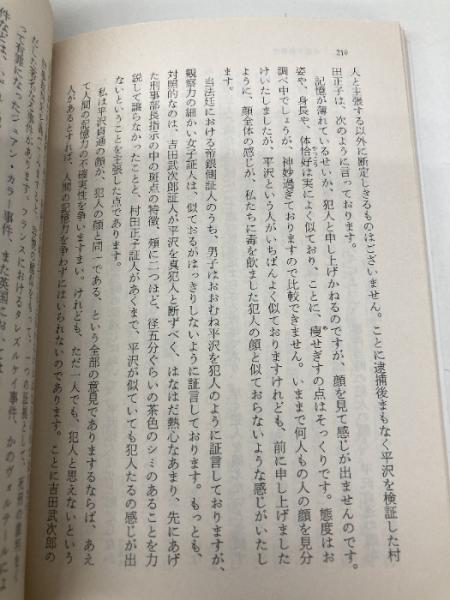 219
人と主張する以外に断定しきるものはございません。ことに逮捕後まもなく平沢を検証した村
田正子は、次のように言っております。
記憶が薄れているせいか、犯人と申し上げかねるのですが、顔を見て感じが出ませんのです。
姿や、身長や、体恰好は実によく似ており、ことに、痩せぎすの点はそっくりです。態度はお
調べ中でしょうが、神妙過ぎておりますので比較できません。いままで何人もの人の顔を見分
けいたしましたが、平沢という人がいちばんよく似ておりますけれども、前に申し上げました
ように、顔全体の感じが、私たちに毒を飲ました犯人の顔と似ておらないような感じがいたし
ます。
当法廷における帝銀側証人のうち、男子はおおむね平沢を犯人のように証言しておりますが、
観察力の細かい女子証人は、似ておるがはっきりしないように証言しております。もっとも、
対照的なのは、吉田武次郎証人が平沢を真犯人と断ずべく、はなはだ熱心なあまり、先にあげ
た刑事部長指示の中の斑点の特徴、頬に二つほど、径五分ぐらいの茶色のシミのあることを力
説して譲らなかったことと、村田正子証人があくまで、平沢が似ていても犯人たるの感じが出
ないということを主張した点であります。
私は平沢貞通の顔が、犯人の顔と同一である、という全部の意見でありまするならば、あえ
て人間の記憶力の不確実性を争いますまい。けれども、ただ一人でも、犯人と思えないという
人があるとすれば、人間の記憶力を争わずにはいられないのであります。ことに吉田武次郎の